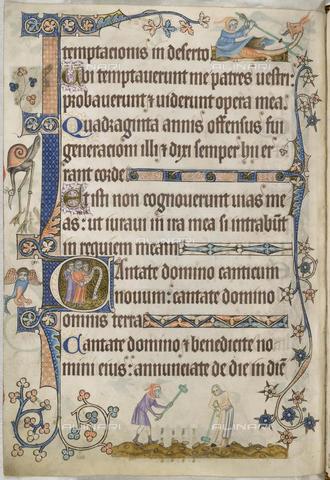 temptacionis in deserto
Ubi temptaverunt me patres uestri:
probauerunt & uiderunt opera mea.
Quadraginta annis offensus fui
generacioni illi & dixi semper hii er
rant corde
Et isti non cognouerunt uias me
as: ut iuraui in ira mea si intrabūt
in requiem meam
Cantate domino canticum
nouum: cantate domino
omnis terra
Cantate domino & benedicite no
mini eius: annunciate de die in diē
ALINARI
ALINARI
ALINARI
ALINARI